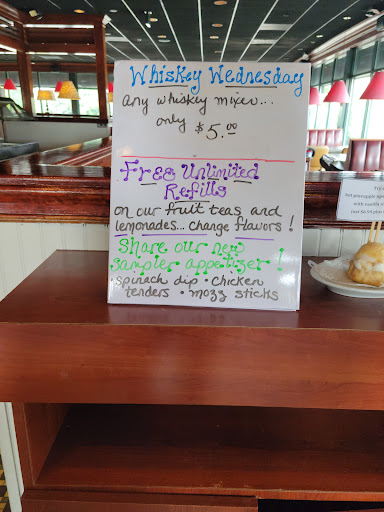 Whiskey Wednesday
Any whiskey mixer...
only $5.00
Free Unlimited
Refills
on our fruit teas and
lemonades... change flavors!
Share our new
sampler appetizer!
spinach dip · chicken
tenders · mozz sticks